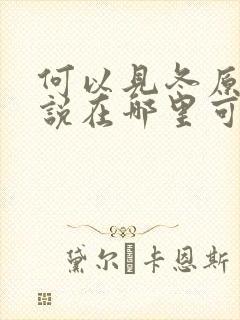 何以見冬原
說在哪里可
黛尔·卡恩斯